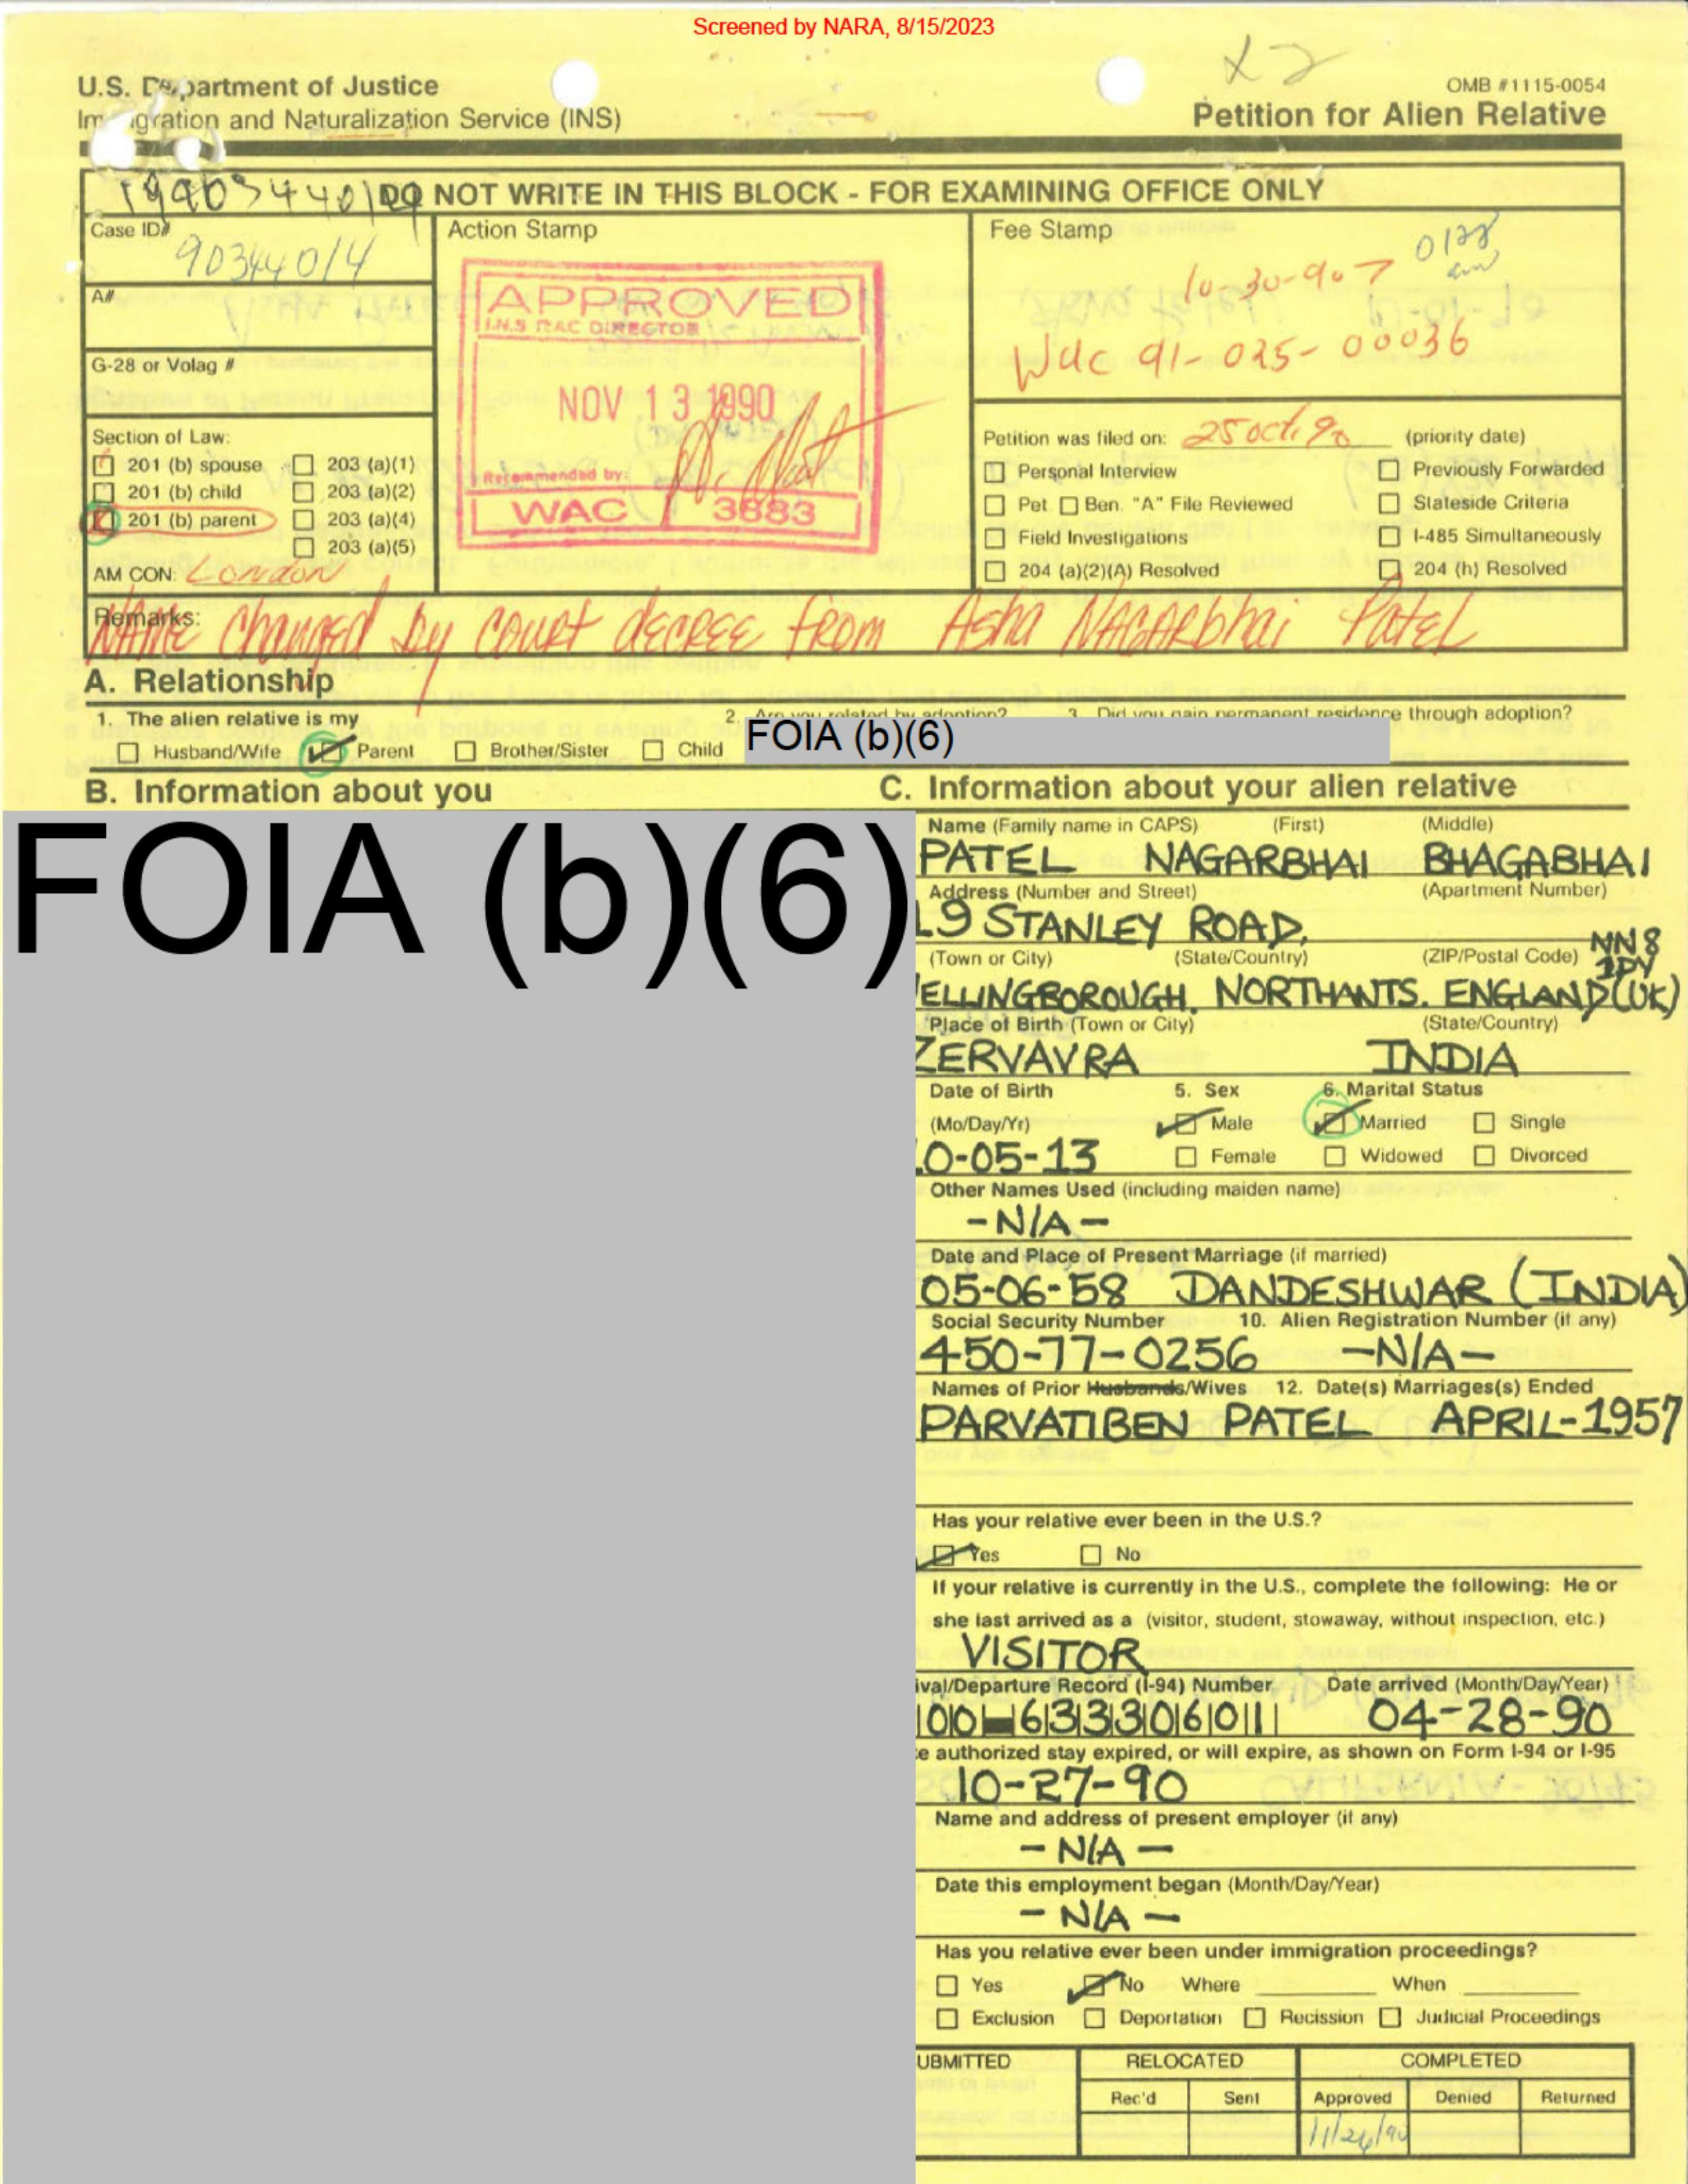 Screened by NARA, 8/15/2023
x2
U.S. Department of Justice
Immigration and Naturalization Service (INS)
OMB #1115-0054
Petition for Alien Relative
DO NOT WRITE IN THIS BLOCK - FOR EXAMINING OFFICE ONLY
Case ID#
90344014
A#
G-28 or Volag #
Section of Law:
201 (b) spouse 203 (a)(1)
201 (b) child 203 (a)(2)
201 (b) parent 203 (a)(4)
203 (a)(5)
AM CON: London
Action Stamp
APPROVED
I.N.S RAC DIRECTOR
NOV 13 1990
Recommended by:
WAC 3883
Fee Stamp
10-30-90
WAC 91-025-00036
Petition was filed on: 25 Oct. 90 (priority date)
Personal Interview Previously Forwarded
Pet. Ben. "A" File Reviewed Stateside Criteria
Field Investigations I-485 Simultaneously
204 (a)(2)(A) Resolved 204 (h) Resolved
Remarks:
NAME changed by court decree from Asha NAGARbhai Patel
A. Relationship
1. The alien relative is my
Husband/Wife Parent Brother/Sister Child
2. Are you related by adoption?
3. Did you gain permanent residence through adoption?
FOIA (b)(6)
B. Information about you
FOIA (b)(6)
C. Information about your alien relative
Name (Family name in CAPS) (First) (Middle)
PATEL NAGARBHAI BHAGABHAI
Address (Number and Street) (Apartment Number)
19 STANLEY ROAD,
(Town or City) (State/Country) (ZIP/Postal Code) NN8
1PY
ELLINGBOROUGH. NORTHANTS. ENGLAND (UK)
Place of Birth (Town or City) (State/Country)
ZERVAVRA INDIA
Date of Birth 5. Sex 6. Marital Status
(Mo/Day/Yr) Male Married Single
0-05-13 Female Widowed Divorced
Other Names Used (including maiden name)
-N/A-
Date and Place of Present Marriage (if married)
05-06-58 DANDESHWAR (INDIA)
Social Security Number 10. Alien Registration Number (if any)
450-77-0256 -N/A-
Names of Prior Husbands/Wives 12. Date(s) Marriages(s) Ended
PARVATIBEN PATEL APRIL-1957
Has your relative ever been in the U.S.?
Yes No
If your relative is currently in the U.S., complete the following: He or
she last arrived as a (visitor, student, stowaway, without inspection, etc.)
VISITOR
ival/Departure Record (I-94) Number Date arrived (Month/Day/Year)
00-633306011 04-28-90
e authorized stay expired, or will expire, as shown on Form I-94 or I-95
10-27-90
Name and address of present employer (if any)
- N/A -
Date this employment began (Month/Day/Year)
- N/A -
Has you relative ever been under immigration proceedings?
Yes No Where When
Exclusion Deportation Recission Judicial Proceedings
UBMITTED RELOCATED COMPLETED
Rec'd Sent Approved Denied Returned
11/26/90